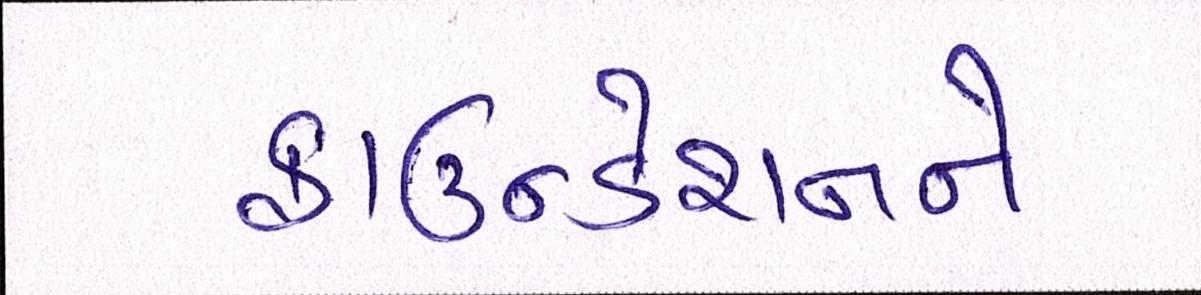 ફાઉન્ડેશનને